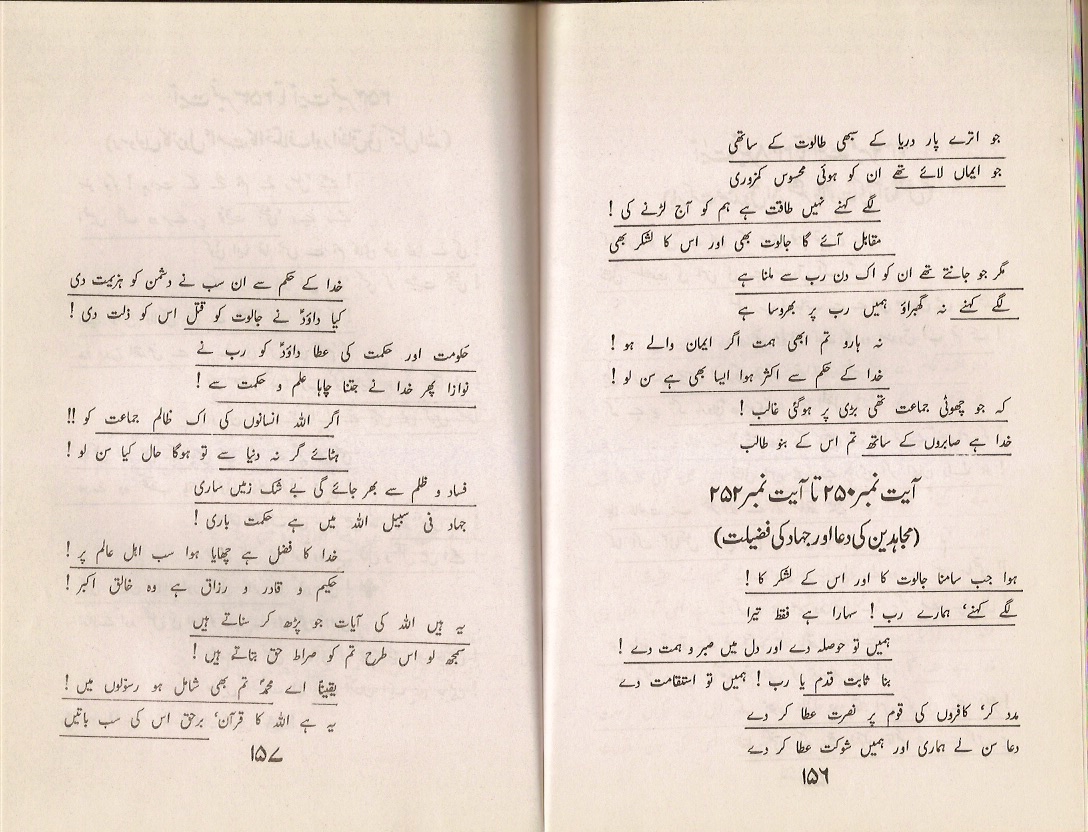 جو اترے پار دریا کے سبھی طالوت کے ساتھی
جو ایماں لائے تھے ان کو ہوئی محسوس کمزوری
لگے کہنے نہیں طاقت ہے ہم کو آج لڑنے کی !
مقابل آئے گا جالوت بھی اور اس کا لشکر بھی
مگر جو جانتے تھے ان کو اک دن رب سے ملنا ہے
لگے کہنے نہ گھبراؤ ہمیں رب پر بھروسا ہے
نہ ہارو تم ابھی ہمت اگر ایمان والے ہو !
خدا کے حکم سے اکثر ہوا ایسا بھی ہے سن لو !
کہ جو چھوٹی جماعت تھی بڑی پر ہوگئی غالب !
خدا ہے صابروں کے ساتھ تم اس کے بنو طالب
آیت نمبر ۲۵۰ تا آیت نمبر ۲۵۲
(مجاہدین کی دعا اور جہاد کی فضیلت)
ہوا جب سامنا جالوت کا اور اس کے لشکر کا !
لگے کہنے‘ ہمارے رب ! سہارا ہے فقط تیرا
ہمیں تو حوصلہ دے اور دل میں صبر و ہمت دے !
بنا ثابت قدم یا رب ! ہمیں تو استقامت دے
مدد کر‘ کافروں کی قوم پر نصرت عطا کر دے
دعا سن لے ہماری اور ہمیں شوکت عطا کر دے
۱۵۶
خدا کے حکم سے ان سب نے دشمن کو ہزیمت دی
کیا داؤدؑ نے جالوت کو قتل اس کو ذلت دی !
حکومت اور حکمت کی عطا داؤدؑ کو رب نے
نوازا پھر خدا نے جتنا چاہا علم و حکمت سے !
اگر اللہ انسانوں کی اک ظالم جماعت کو !!
ہٹائے گر نہ دنیا سے تو ہوگا حال کیا سن لو !
فساد و ظلم سے بھر جائے گی بے شک زمیں ساری
جہاد فی سبیل اللہ میں ہے حکمت باری !
خدا کا فضل ہے چھایا ہوا سب اہل عالم پر !
حکیم و قادر و رزاق ہے وہ خالق اکبر !
یہ ہیں اللہ کی آیات جو پڑھ کر سناتے ہیں
سمجھ لو اس طرح تم کو صراط حق بتاتے ہیں !
یقیناً اے محمدؐ تم بھی شامل ہو رسولوں میں !
یہ ہے اللہ کا قرآن‘ برحق اس کی سب باتیں
۱۵۷